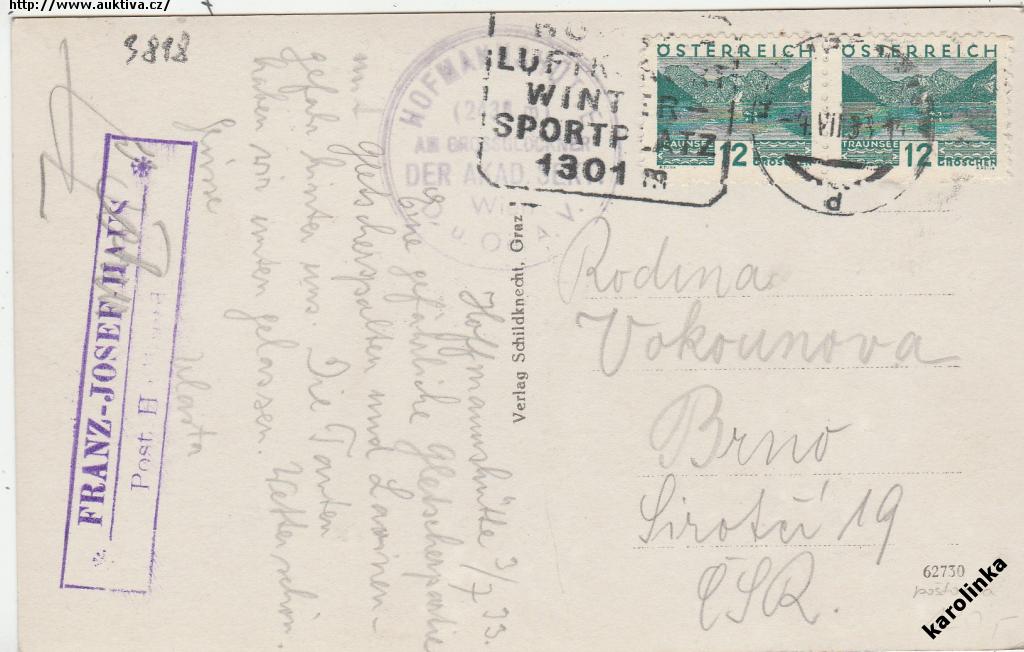 http://www.auktiva.cz/
9818
LUFTK
WINT
SPORTP
1301 m
ÖSTERREICH
TRAUNSEE 12 GROSCHEN
ÖSTERREICH
TRAUNSEE 12 GROSCHEN
AM GROSSGLOCKNER
DER AKAD. SEKT.
WIEN
FRANZ-JOSEF-HAUS
Post
Hoffmannshütte 3/7 33.
eine gefährliche Gletscherpartie
mit Gletscherspalten und Lawinen-
gefahr hinter uns. Die Tanten
haben wir unten gelassen. Wetter schön.
Vlasta
Verlag Schildknecht, Graz
Rodina
Vokounova
Brno
Sirotčí 19
ČSR.
62730
karolinka